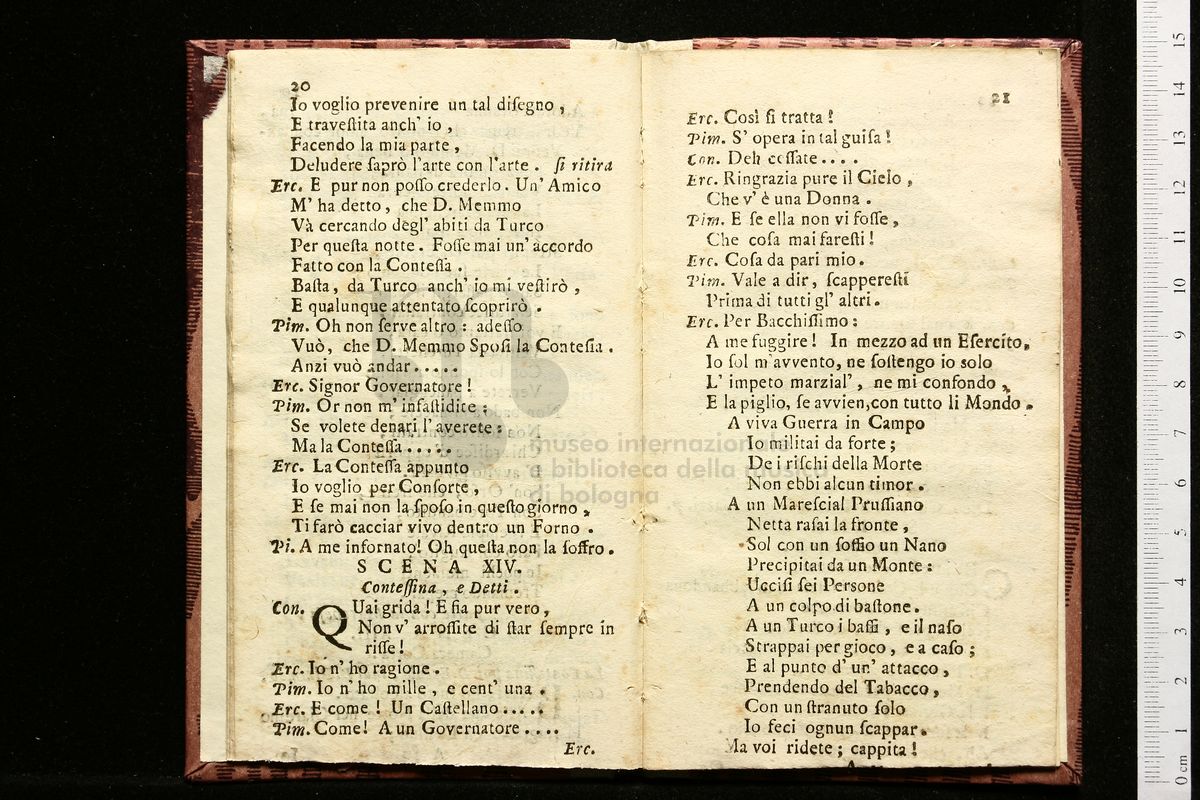 20
Io voglio prevenire un tal diſegno ,
E traveſtita anch' io ,
Facendo la mia parte ,
Deludere ſaprò l'arte con l'arte . ſi ritira
Erc. E pur non poſſo crederlo. Un' Amico
M' ha detto , che D. Memmo
Và cercando degl' abiti da Turco
Per queſta notte . Foſſe mai un' accordo
Fatto con la Conteſſa .
Baſta , da Turco anch' io mi veſtirò ,
E qualunque attentato ſcoprirò .
Pim. Oh non ſerve altro : adeſſo
Vuò , che D. Memmo Spoſi la Conteſſa .
Anzi vuò andar . . . . .
Erc. Signor Governatore !
Pim. Or non m' infaſtidite ;
Se volete denari l' averete :
Ma la Conteſſa . . . . .
Erc. La Conteſſa appunto
Io voglio per Conſorte ,
E ſe mai non la ſpoſo in queſto giorno ,
Ti farò cacciar vivo dentro un Forno .
Pi. A me infornato! Oh queſta non la ſoffro .
SCENA XIV.
Conteſſina , e Detti .
Con. QUai grida ! E ſia pur vero ,
Non v' arroſſite di ſtar ſempre in
riſſe !
Erc. Io n' ho ragione .
Pim. Io n' ho mille , e cent' una .
Erc. E come ! Un Caſtellano . . . . .
Pim. Come! A un Governatore . . . .
Erc.
21
Erc. Così ſi tratta !
Pim. S' opera in tal guiſa !
Con. Deh ceſſate . . . .
Erc. Ringrazia pure il Cielo ,
Che v' è una Donna .
Pim. E ſe ella non vi foſſe ,
Che coſa mai fareſti !
Erc. Coſa da pari mio .
Pim. Vale a dir , ſcappereſti
Prima di tutti gl' altri .
Erc. Per Bacchiſſimo :
A me fuggire ! In mezzo ad un Eſercito,
Io ſol m'avvento, ne ſoſtengo io solo
L' impeto marzial' , ne mi confondo ,
E la piglio, ſe avvien,con tutto li Mondo .
A viva Guerra in Campo
Io militai da forte ;
De i riſchi della Morte
Non ebbi alcun timor .
A un Mareſcial Pruſſiano
Netta raſai la fronte ,
Sol con un ſoffio un Nano
Precipitai da un Monte :
Ucciſi ſei Perſone
A un colpo di baſtone .
A un Turco i baffi , e il naſo
Strappai per gioco , e a caſo ;
E al punto d' un' attacco ,
Prendendo del Tabacco ,
Con un ſtranuto ſolo
Io feci ognun ſcappar .
Ma voi ridete ; cappita !
museo internazionale
e biblioteca della musica
di bologna
0 cm 1 2 3 4 5 6 7 8 9 10 11 12 13 14 15